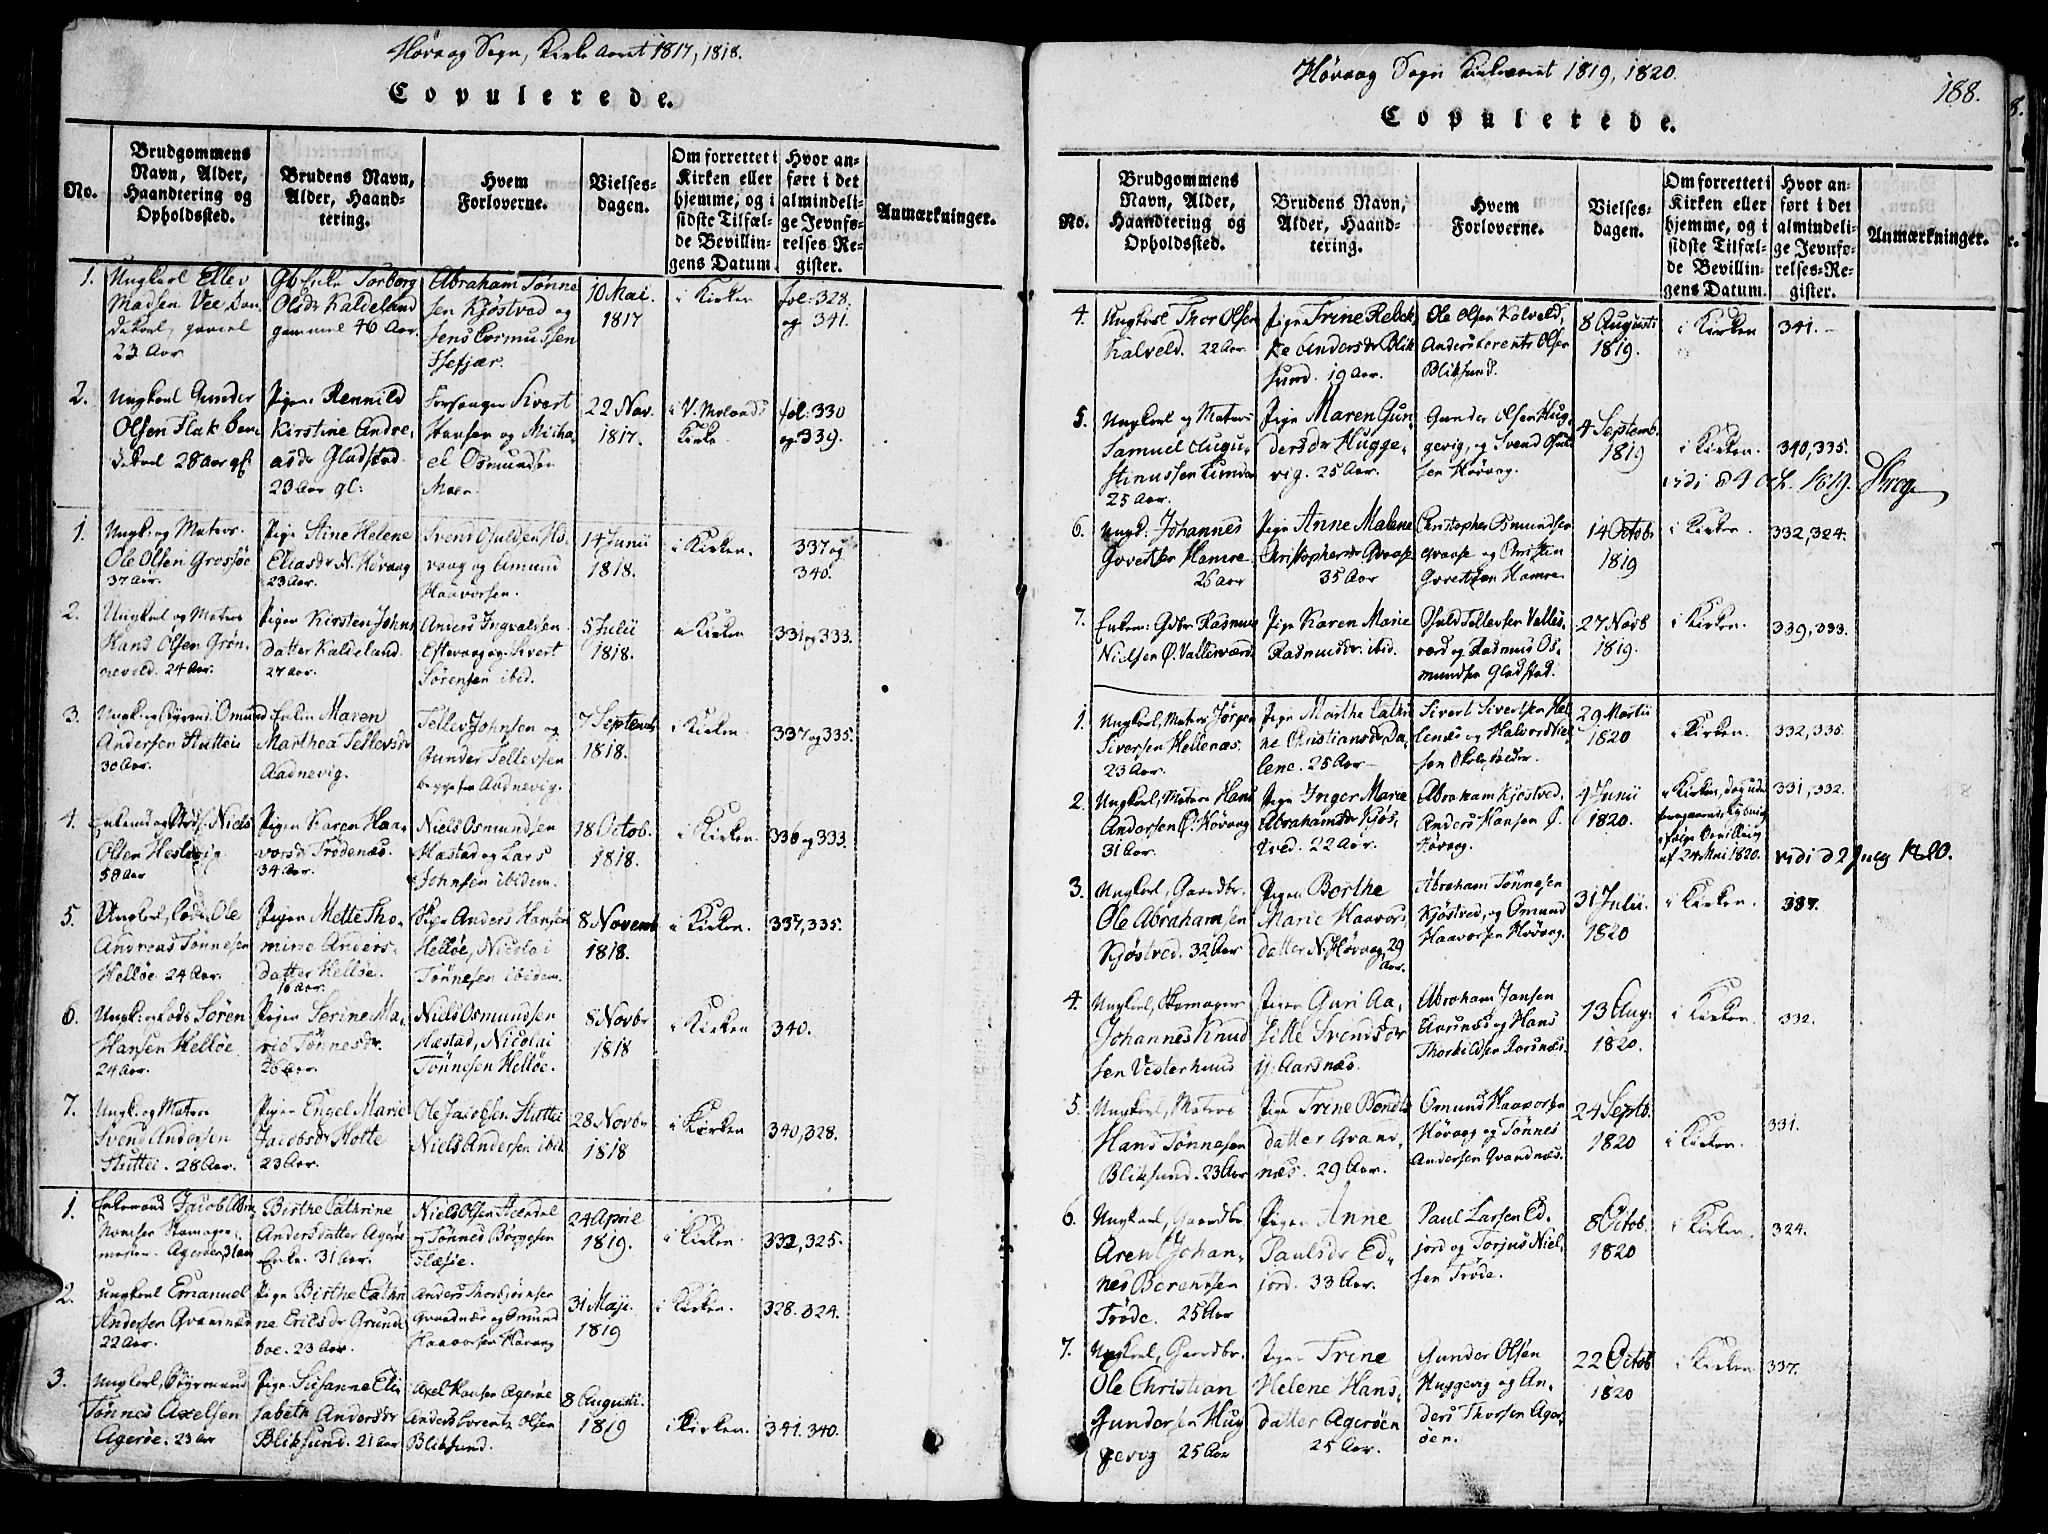 Høvaag Sogn, Kirke Aaret 1817, 1818.
Copulerede.
No.
Brudgommens Navn, Alder, Haandtering og Opholdssted.
Brudens Navn, Alder, Haandtering.
Hvem Forloverne.
Vielsesdagen.
Om forrettet i Kirken eller hjemme, og i sidste Tilfælde Bevillingens Datum.
Hvor anført i det almindelige Jevnførelses Register.
Anmærkninger.
1. Ungkarl Ellev
Madsen Vee,
gammel
23 Aar
Enke Torborg
Olsdr Kaldeland
gammel 46 Aar.
Abraham Tønne
sen Kjøstvad og
Jens Gormussen
Isefjær.
10 Mai.
1817
i Kirken
fol: 328.
og 341.
2. Ungkarl Gunder
Olsen Flak
28 Aar gl.
Pigen Rennild
Kirstine Andre-
asdr Gladstad
23 Aar gl:
Forsanger Sivert
Hansen og Micha-
el Osmundsen
Moen.
22 Nov.
1817.
i V. Molands
Kirke
fol: 330
og 339.
1. Ungk: og Matros
Ole Olsen Grossøe
37 Aar.
Pige Aine Helene
Eliasdr N. Høvaag
23 Aar.
Svend Osulden Hø-
vaag og Omund
Haavorsen.
14 Junii
1818.
i Kirken.
337 og
340.
2. Ungkarl og Matros
Hans Olsen Grøn-
neveld. 24 Aar.
Pigen Kirsten Johns
datter Kaldeland.
27 Aar.
Anders Ingvaldsen
Eftevaag og Sivert
Sørensen ibid.
5 Julii
1818.
i Kirken
331 og 333.
3. Ungk: og Styrmd: Omund
Andersen Stuttei
30 Aar.
Enken Maren
Marthea Tellevsdr
Aadnevig.
Tellev Johnsen og
Gunder Tellevsen
begge fra Aadnevig.
7 September
1818.
i Kirken.
337 og 335.
4. Enkemd og Niels
Olsen Heslevig.
58 Aar
Pigen Karen Haa-
vorsdr Trødenæs.
34 Aar.
Niels Osmundsen
Hæstad og Lars
Johnsen ibidem.
18 Octob.
1818.
i Kirken.
336 og 333.
5. Ungkarl, Lods, Ole
Andreas Tønnesen
Helløe 24 Aar.
Pigen Mette Tho-
mine Anders-
datter Helløe.
16 Aar.
Anders Hansen
Helløe, Nicolai
Tønnesen ibidem.
8 Novemb
1818.
i Kirken.
337, 335.
6. Ungk: og Lods Søren
Hansen Helløe
24 Aar.
Pigen Serine Ma-
rie Tønnesdr.
26 Aar.
Niels Osmundsen
Hæstad, Nicolai
Tønnesen Helløe.
8 Novbr
1818
i Kirken
340.
7. Ungk: og Matros
Svend Andersen
Stuttei. 28 Aar.
Pigen Engel Marie
Jacobsdr Holte
23 Aar.
Ole Jacobsen Stuttei
Niels Andersen ibid.
28 Novbr
1818
i Kirken
340, 328.
1. Enkemand Jacob
Agerøen, 31 Aar
Birthe Cathrine
Andersdatter Agerøe
Enke. 31 Aar.
Niels Olsen
og Tønnes Børgesen
24 April
1819.
i Kirken.
332, 325.
2. Ungkarl Emanuel
Andersen Grandnæs
22 Aar.
Pige Birthe Cathri
ne Ericsdr Grunde
boe. 23 Aar.
Anders Thorbjørnsen
Grandnæs og Omund
Haavorsen Høvaag
31 Maji.
1819
i Kirken.
328. 324.
3. Ungkarl, Styrmand
Tønnes Axelsen
Agerøe. 23 Aar
Pige Susanne Eli-
sabeth Andersdr
Bliksund. 21 Aar
Axel Hansen Agerøe
Anders Lorentz Olsen
Bliksund.
8 Augusti.
1819
i Kirken.
341. 340.
Høvaag Sogn Kirkeaaret 1819, 1820.
188.
Copulerede.
No.
Brudgommens Navn, Alder, Haandtering og Opholdssted.
Brudens Navn, Alder, Haandtering.
Hvem Forloverne.
Vielsesdagen.
Om forrettet i Kirken eller hjemme, og i sidste Tilfælde Bevillingens Datum.
Hvor anført i det almindelige Jevnførelses-Register.
Anmærkninger.
4. Ungkarl Thor Olsen
Kalveld. 22 Aar.
Pige Trine Rebek-
ke Andersdr Blik
sund. 19 Aar.
Ole Olsen Kalveld,
Anders Lorents Olsen
Bliksund.
8 Augusti
1819.
i Kirken
341.
5. Ungkarl og Matros
Samuel Augu-
stinussen
25 Aar.
Pige Maren Gun-
dersdr Hugge-
vig. 25 Aar.
Gunder Olsen Hug-
gevig, og Svend Osuld
sen Høvaag.
4 Septemb.
1819
i Kirken.
340, 335.
vidi d 9 Oct. 1819.
6. Ungk: Johannes
Govertsen Hamre.
26 Aar
Pige Anne Malene
Christophersdr Graase
35 Aar
Christopher Osmundsen
Graase og Christen
Govertsen Hamre.
14 Octob.
1819
i Kirken
332, 324.
7. Enkem: Gdbr Rasmus
Nielsen Ø. Vallesværd.
Pige Karen Marie
Rasmusdr. ibid.
Osuld Tellevsen Valles-
værd og Rasmus Os-
mundsen Gladstad.
27 Novb
1819.
i Kirken.
339, 333.
1. Ungkarl, Matros Jørgen
Siversen Hellenæs.
23 Aar.
Pige Marthe Cathri
ne Christiansdr Da-
lene. 25 Aar
Sivert Sivertsen Hel-
lenæs og Halvord Niel-
sen
29 Martii
1820
i Kirken.
332, 335.
2. Ungkarl, Matros Hans
Andersen Ø. Høvaag
31 Aar.
Pige Inger Marie
Abrahamsdr Kjøs-
tved. 22 Aar.
Abraham Kjøstved.
Anders Hansen Ø.
Høvaag.
4 Junii
1820.
i Kirken, dog uden
ifølge Bevilling
af 24 Mai 1820.
331, 332.
vidi d 2 July 1820.
3. Ungkarl, Gaardbr.
Ole Abrahamsen
Kjøstved. 32 Aar
Pigen Borthe
Marie Haavors
datter N. Høvaag, 29
Aar.
Abraham Tønnesen
Kjøstved, og Omund
Haavorsen Høvaag.
31 Julii.
1820
i Kirken.
337.
4. Ungkarl, Skomager
Johannes Knud
sen Vesterhuus
Pigen Guri Aa-
sille Svendsdr
Y. Aarsnæs.
Abraham Jansen
Aarsnæs og Hans
Thorkildsen Aarsnæs.
13 Aug.
1820.
i Kirken
332.
5. Ungkarl, Matros
Hans Tønnesen
Bliksund. 23 Aar
Pige Trine Bendts
datter Grand-
næs. 29 Aar.
Omund Haavorsen
Høvaag og Tønnes
Andersen Grandnæs.
24 Septb.
1820
i Kirken.
331.
6. Ungkarl, Gaardbr.
Arent Johan-
nes Berentsen
Trøde. 25 Aar
Pigen Anne
Paulsdr Ed-
jord. 33 Aar.
Paul Larsen Ed-
jord og Torjus Niel-
sen Trøde.
8 Octob.
1820
i Kirken.
324.
7. Ungkarl, Gaardbr.
Ole Christian
Gundersen Hug
gevig 25 Aar
Pigen Trine
Helene Hans-
datter Agerøen
25 Aar.
Gunder Olsen
Huggevig og An-
ders Thorsen Ager-
øen.
22 Octob
1820
i Kirken
337.